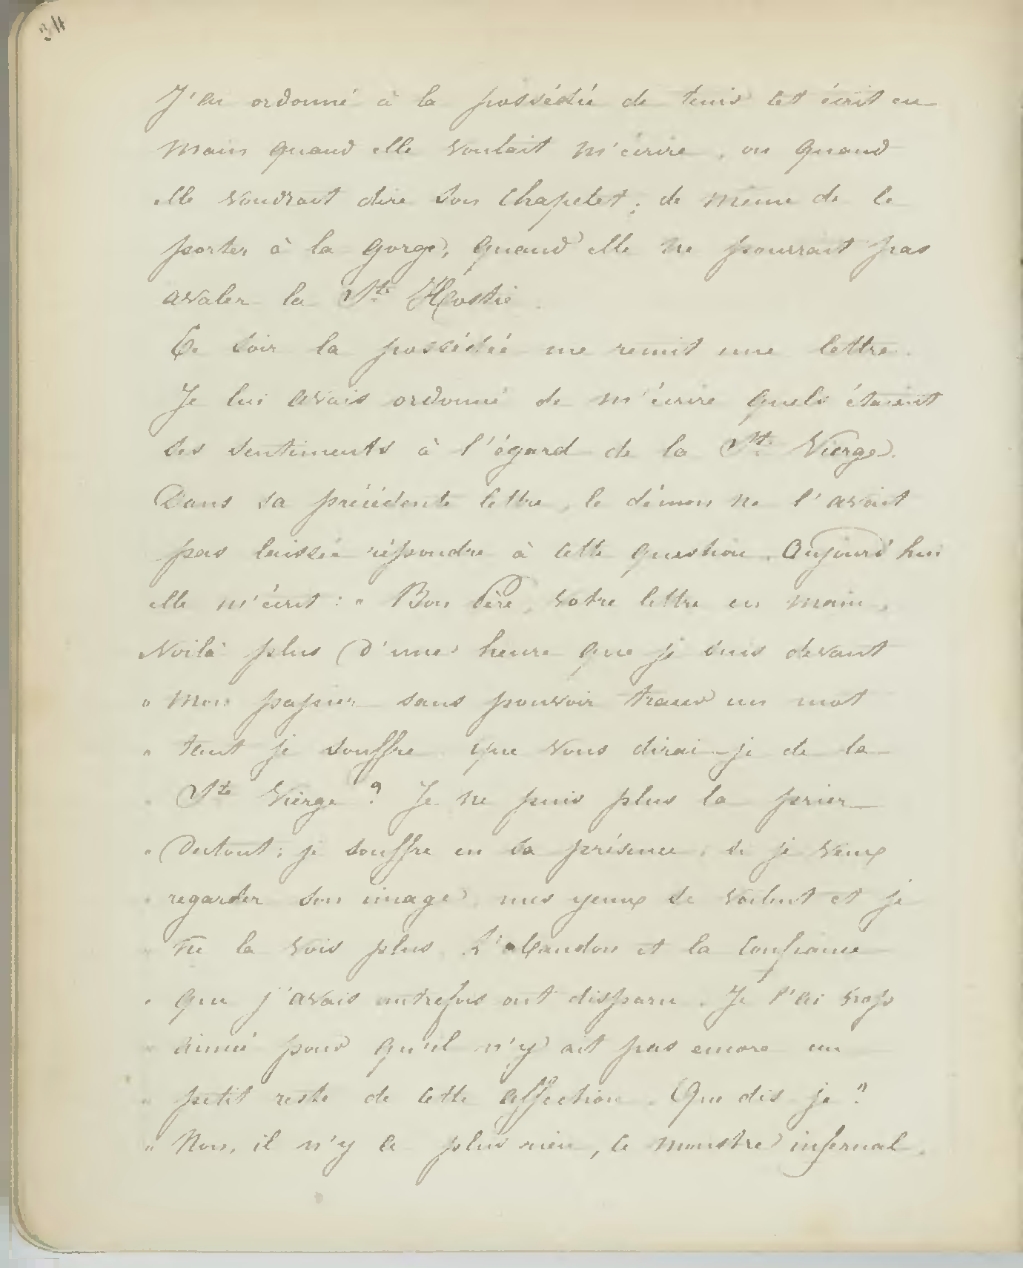 34
J'ai ordonné à la possédée de tenir cet écrit en
main quand elle voulait m'écrire, ou quand
elle voudrait dire son chapelet; de même de le
porter à la gorge, quand elle ne pourrait pas
avaler la Ste Hostie.
Ce soir la possédée me remit une lettre.
Je lui avais ordonné de m'écrire quels étaient
ses sentiments à l'égard de la Ste Vierge.
Dans sa précédente lettre, le démon ne l'avait
pas laissée répondre à cette question. Aujourd'hui
elle m'écrit: " Bon Père, votre lettre en main,
Voilà plus d'une heure que je suis devant
" mon papier sans pouvoir tracer un mot
" tant je souffre que vous dirai-je de la
" Ste Vierge? Je ne puis plus la prier
" Du tout; je souffre en sa présence, si je veux
" regarder son image, mes yeux se voilent et je
" ne la vois plus. L'abandon et la confiance
" que j'avais autrefois ont disparu. Je l'ai trop
" aimée pour qu'il n'y ait pas encore un
" petit reste de cette affection. Que dis je?
" Non, il n'y a plus rien, le monstre infernal